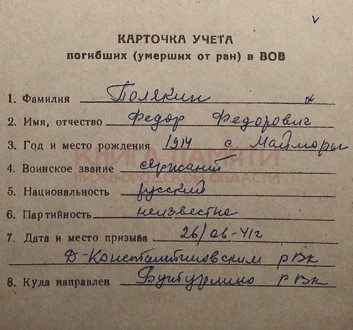 КАРТОЧКА УЧЕТА
погибших (умерших от ран) в ВОВ
1. Фамилия Полякин
2. Имя, отчество Федор Федорович
3. Год и место рождения 1914 с. Майморы
4. Воинское звание сержант
5. Национальность русский
6. Партийность неизвестно
7. Дата и место призыва 26/06-41г
Д-Константиновским рвк
8. Куда направлен Бутурлино рвк
КНИГА ПАМЯТИ
НИЖЕГОРОДСКОЙ ОБЛАСТИ